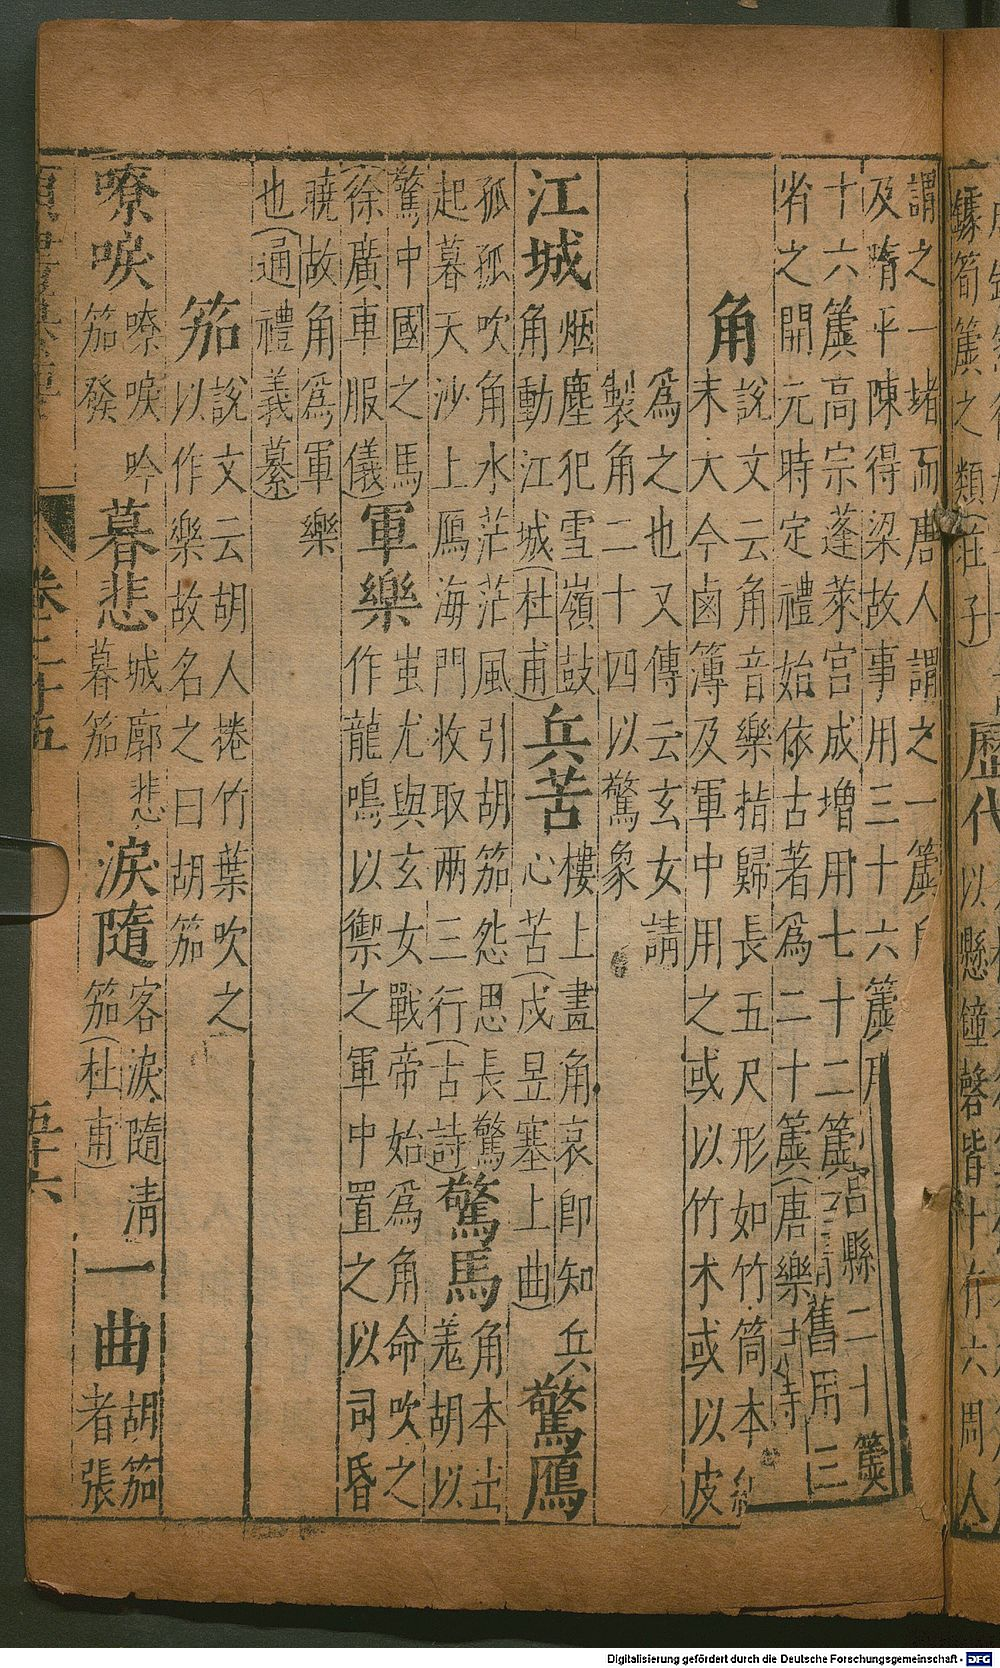 謂之一堵而唐人謂之一簴
及隋平陳得梁故事用三十六簴
宮縣二十簴
十六簴高宗蓬萊宮成增用七十二簴
舊用二
省之開元時定禮始依古著爲二十簴(唐樂
角
說文云角音樂指歸長五尺形如竹筒本
末大今鹵簿及軍中用之或以竹木或以皮
爲之也又傳云玄女請
製角二十四以驚象
江城
烟塵犯雪嶺鼓
角動江城(杜甫)
兵苦
樓上畫角哀即知兵
心苦(戍昱塞上曲)
驚鴈
孤孤吹角水茫茫風引胡笳怨思長驚
起暮天沙上鴈海門收取两三行(古詩)
驚馬
角本出
羗胡以
驚中國之馬
徐廣車服儀)
軍樂
蚩尤與玄女戰帝始爲角命吹之
作龍鳴以禦之軍中置之以司昏
曉故角爲軍樂
也(通禮義纂)
笳
說文云胡人捲竹葉吹之
以作樂故名之曰胡笳
嘹唳
嘹唳吟
笳發
暮悲
城廓悲
暮笳
淚隨
客淚隨清
笳(杜甫)
一曲
胡笳
者張
卷二十五
五十六
鐻筍簴之類(莊子)
歷代
以懸鐘磬皆十有六周人
Digitalisierung gefördert durch die Deutsche Forschungsgemeinschaft - DFG